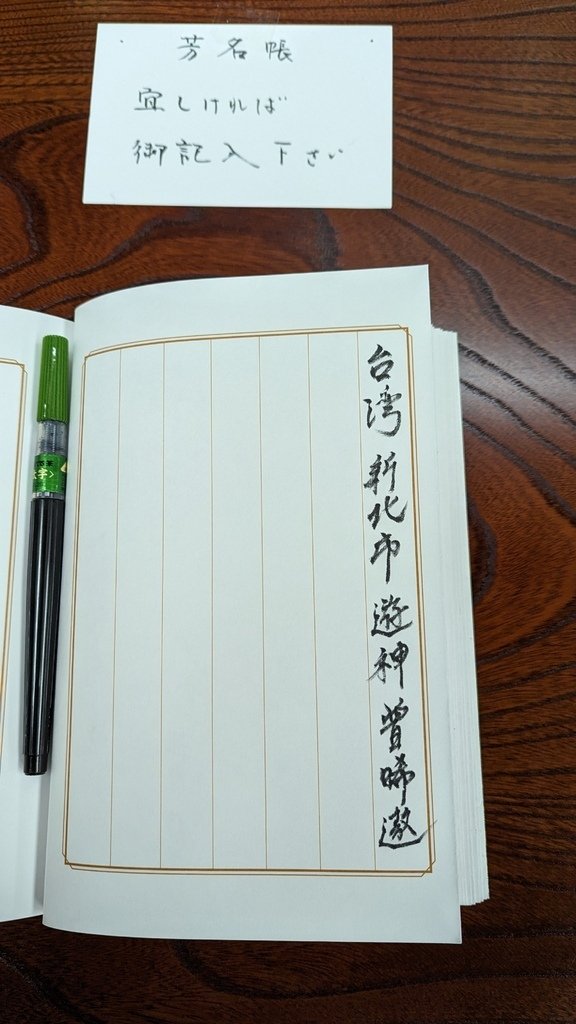 芳名帳
宜しければ
御記入下さい
台湾 新北市 遊神 曾晞遨
字〉